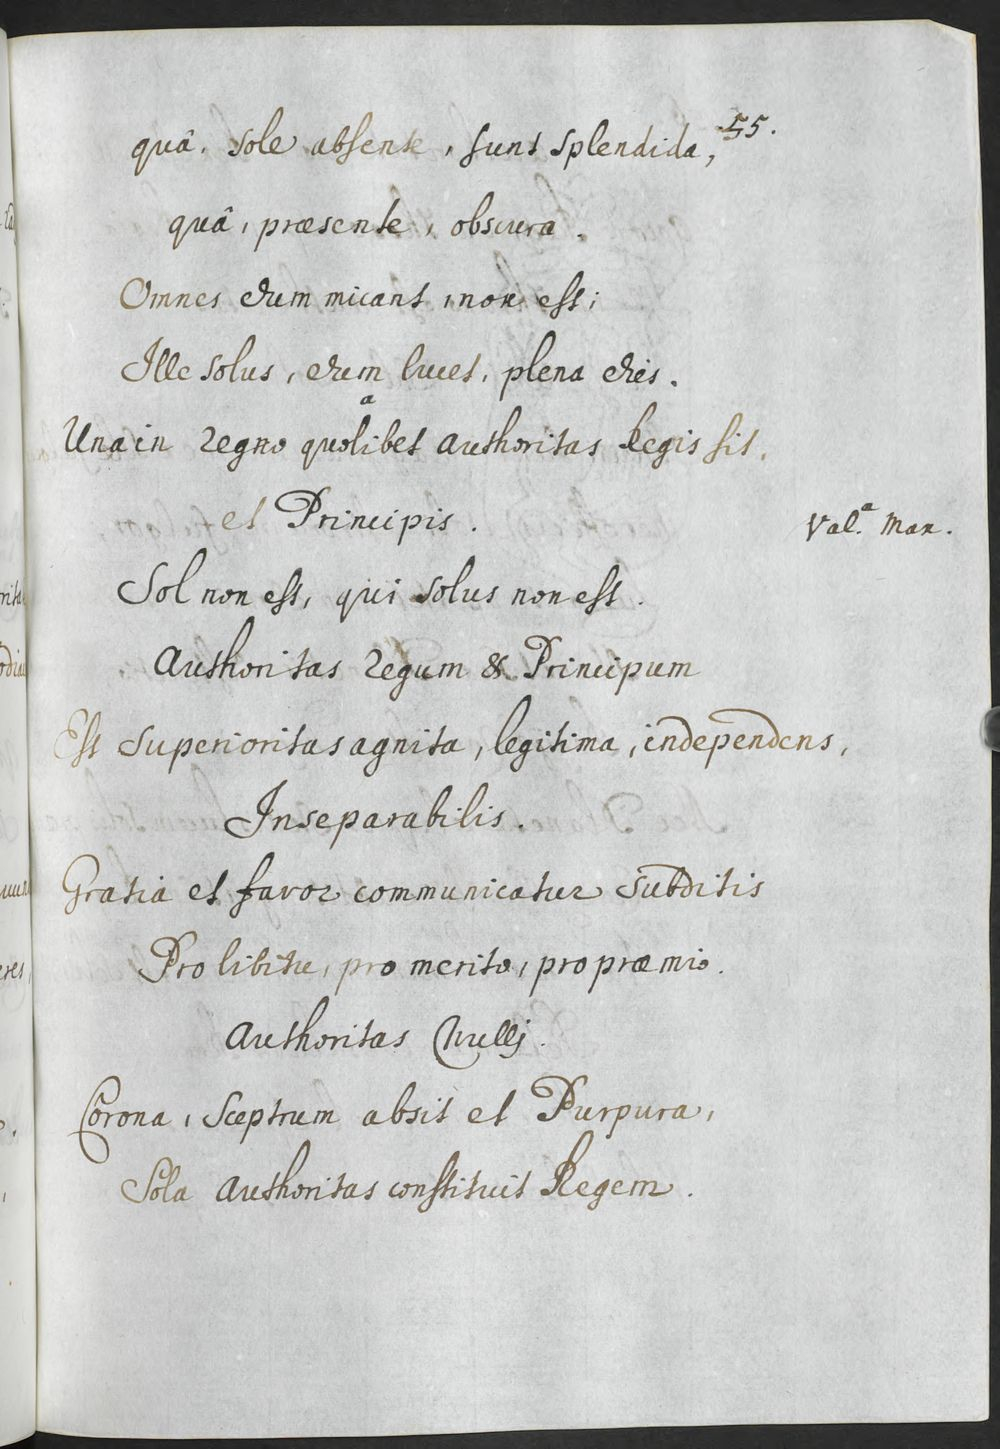 55.
quâ, sole absente, sunt splendida,
quâ, præsente, obscura.
Omnes dum micant, nox est;
Ille solus, dum lucet, plena dies.
Una in regno quolibet a authoritas Regis sit,
et Principis.
Val.ª Max.
Sol non est, qui solus non est.
Authoritas regum & Principum
Est superioritas agnita, legitima, independens,
Inseparabilis.
Gratia et favor communicatur subditis
Pro libitu, pro merito, pro præmio.
Authoritas Nullj.
Corona, Sceptrum absit et Purpura,
Sola authoritas constituit Regem.